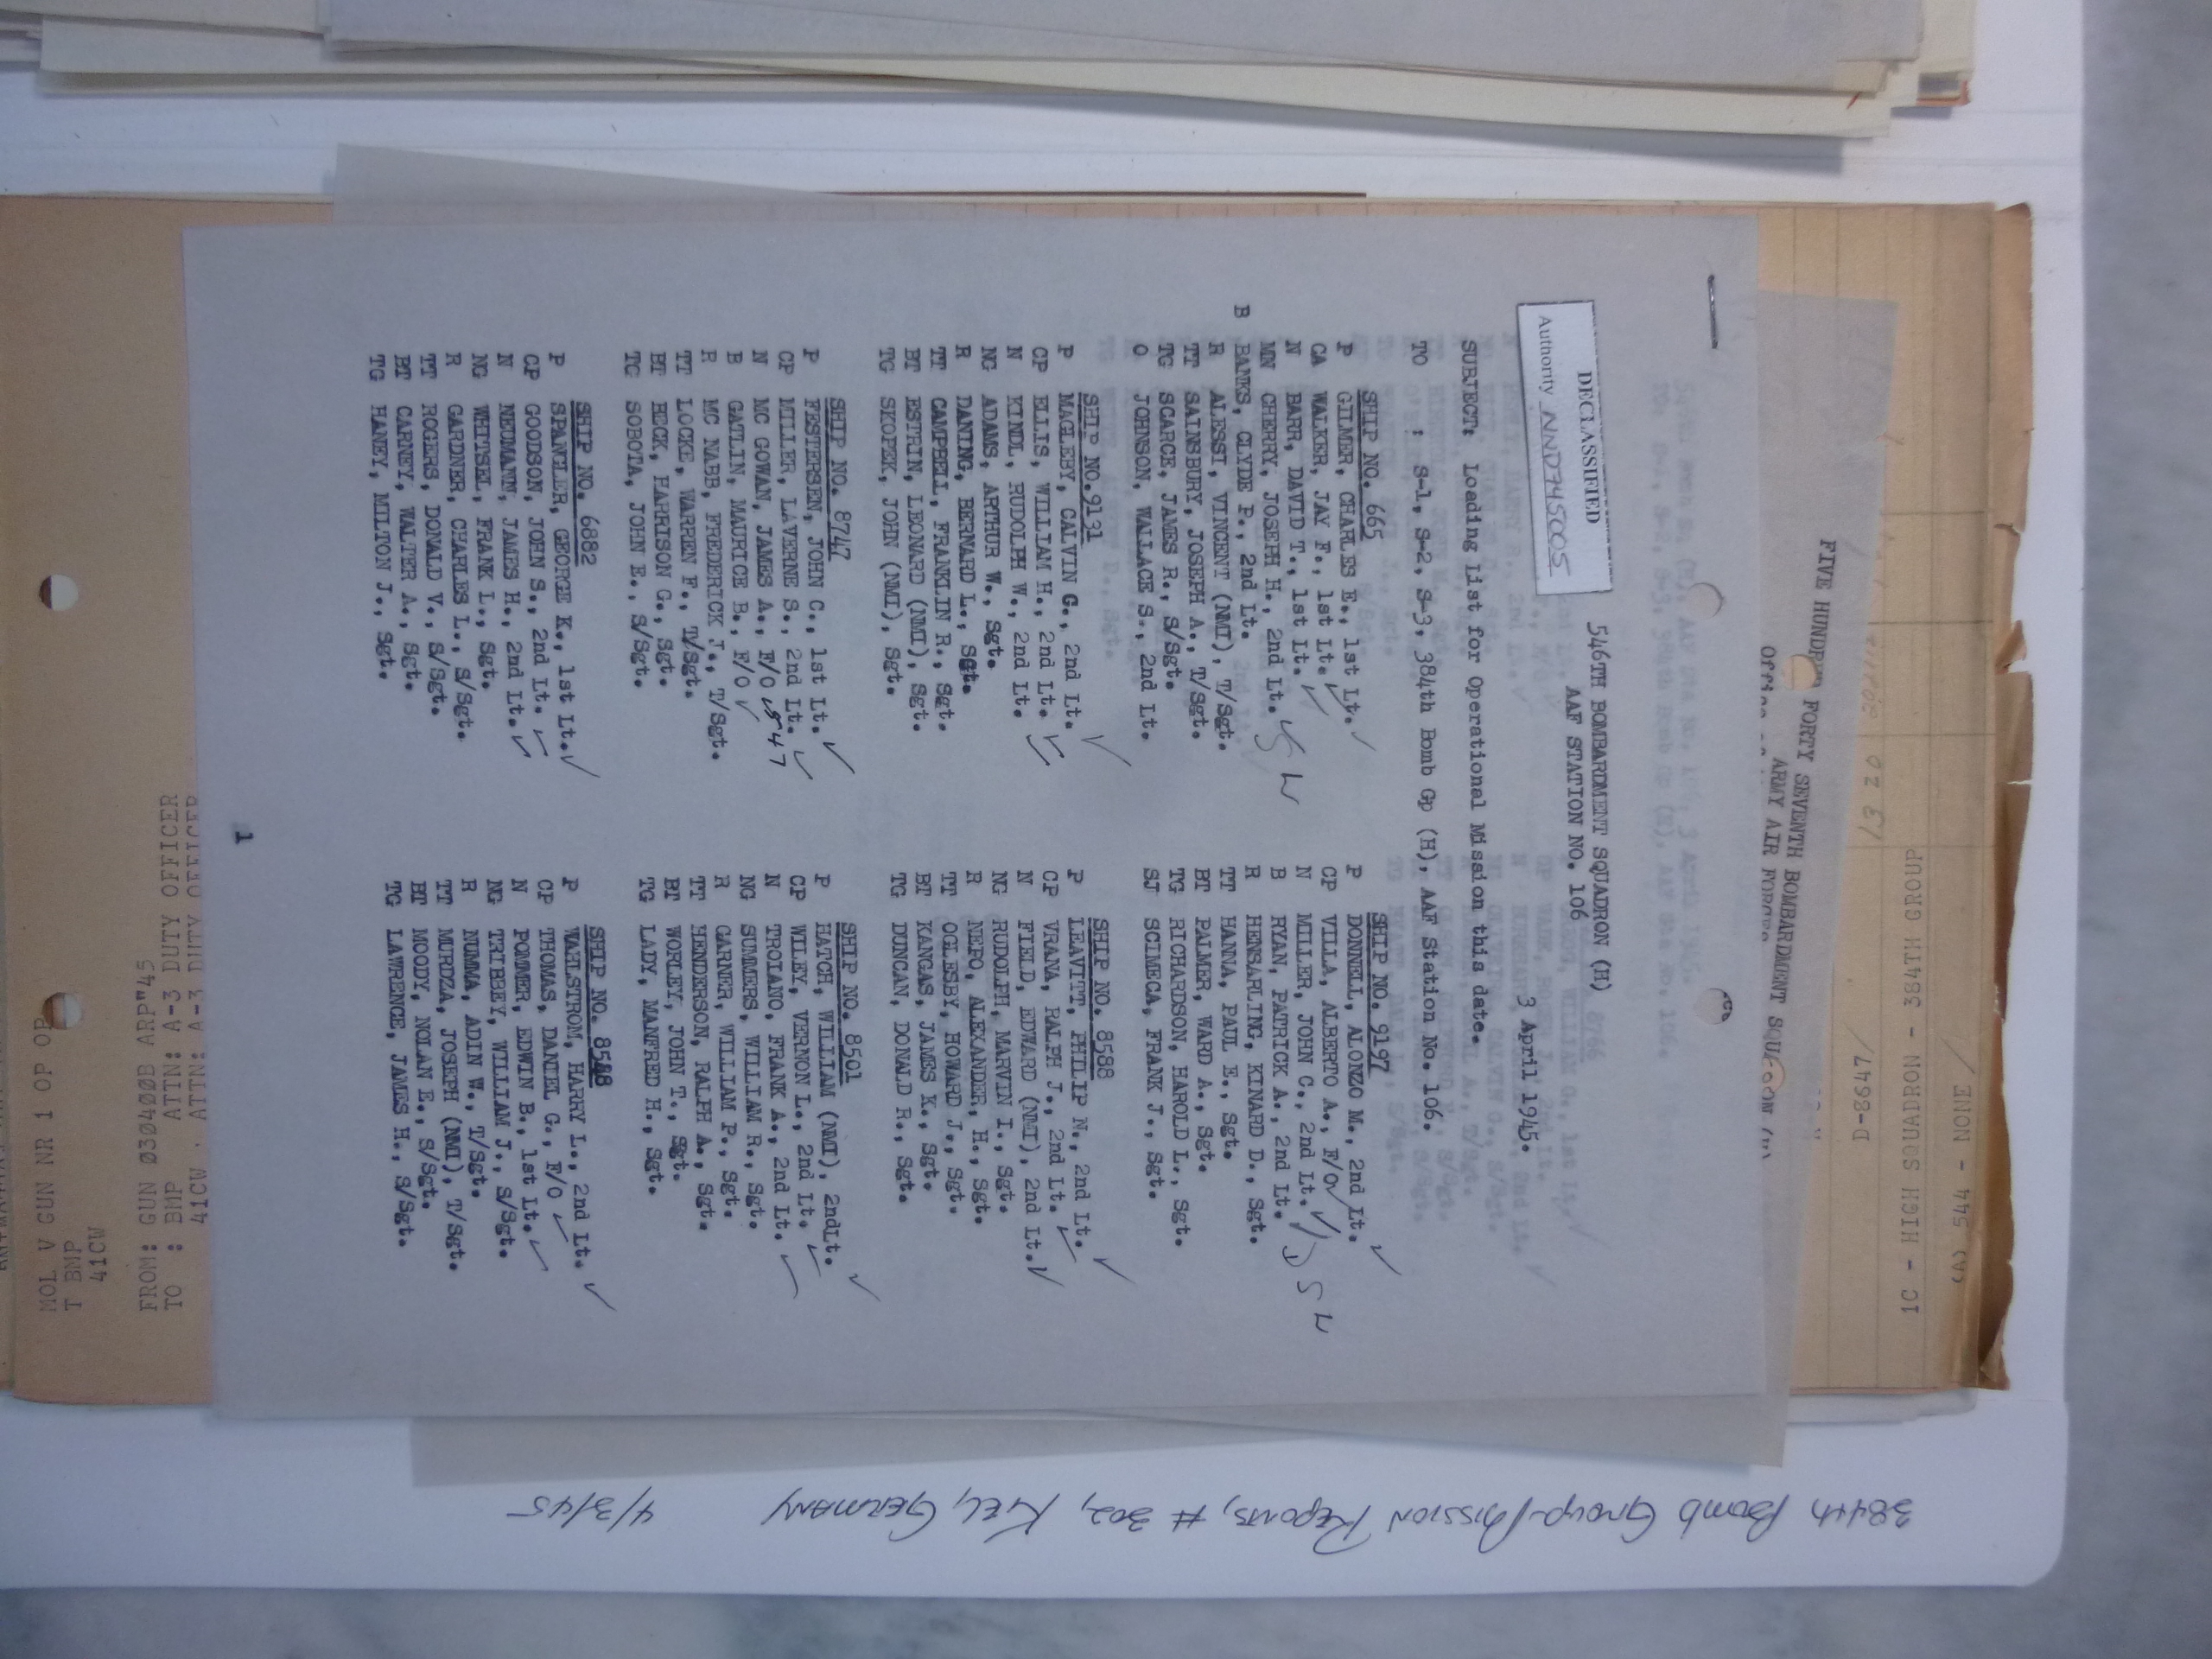 DECLASSIFIED
Authority NND745005
546TH BOMBARDMENT SQUADRON (H)
AAF STATION NO. 106
3 April 1945.
SUBJECT: Loading List for Operational Mission this date.
TO : S-1, S-2, S-3, 384th Bomb Gp (H), AAF Station No. 106.
SHIP NO. 665
P GILMER, CHARLES E., 1st Lt. ✓
CA WALKER, JAY F., 1st Lt. ✓
N BARR, DAVID T., 1st Lt. ✓
MN CHERRY, JOSEPH H., 2nd Lt.
B BANKS, CLYDE P., 2nd Lt.
R ALESSI, VINCENT (NMI), T/Sgt.
TT SAINSBURY, JOSEPH A., T/Sgt.
TG SCARCE, JAMES R., S/Sgt.
O JOHNSON, WALLACE S., 2nd Lt.
SHIP NO. 9197
P DONNELL, ALONZO M., 2nd Lt. ✓
CP VILLA, ALBERTO A., F/O ✓
N MILLER, JOHN C., 2nd Lt. ✓
B RYAN, PATRICK A., 2nd Lt.
R HENSARLING, KINARD D., Sgt.
TT HANNA, PAUL E., Sgt.
BT PALMER, WARD A., Sgt.
TG RICHARDSON, HAROLD L., Sgt.
SJ SCIMECA, FRANK J., Sgt.
SHIP NO.9131
P MAGLEBY, CALVIN G., 2nd Lt. ✓
CP ELLIS, WILLIAM H., 2nd Lt. ✓
N KINDL, RUDOLPH W., 2nd Lt. ✓
NG ADAMS, ARTHUR W., Sgt.
R DANING, BERNARD L., Sgt.
TT CAMPBELL, FRANKLIN R., Sgt.
BT ESTRIN, LEONARD (NMI), Sgt.
TG SKOPEK, JOHN (NMI), Sgt.
SHIP NO. 8588
P LEAVITT, PHILIP N., 2nd Lt. ✓
CP VRANA, RALPH J., 2nd Lt. ✓
N FIELD, EDWARD (NMI), 2nd Lt. ✓
NG RUDOLPH, MARVIN I., Sgt.
R NEFO, ALEXANDER, H., Sgt.
TT OGLESBY, HOWARD J., Sgt.
BT KANGAS, JAMES K., Sgt.
TG DUNCAN, DONALD R., Sgt.
SHIP NO. 8747
P FESTERSEN, JOHN C., 1st Lt. ✓
CP MILLER, LAVERNE S., 2nd Lt. ✓
N MC GOWAN, JAMES A., F/O ✓ 547
B GATLIN, MAURICE B., F/O ✓
R MC NABB, FREDERICK J., T/Sgt.
TT LOCKE, WARREN F., T/Sgt.
BT BECK, HARRISON G., Sgt.
TG SOBOTA, JOHN E., S/Sgt.
SHIP NO. 8501
P HATCH, WILLIAM (NMI), 2ndLt. ✓
CP WILEY, VERNON L., 2nd Lt. ✓
N TROIANO, FRANK A., 2nd Lt. ✓
NG SUMMERS, WILLIAM R., Sgt.
R GARNER, WILLIAM P., Sgt.
TT HENDERSON, RALPH A., Sgt.
BT WORLEY, JOHN T., Sgt.
TG LADY, MANFRED H., Sgt.
SHIP NO. 6882
P SPANGLER, GEORGE K., 1st Lt. ✓
CP GOODSON, JOHN S., 2nd Lt. ✓
N NEUMANN, JAMES H., 2nd Lt. ✓
NG WHITSEL, FRANK L., Sgt.
R GARDNER, CHARLES L., S/Sgt.
TT ROGERS, DONALD V., S/Sgt.
BT CARNEY, WALTER A., Sgt.
TG HANEY, MILTON J., Sgt.
SHIP NO. 8548
P WAHLSTROM, HARRY L., 2nd Lt. ✓
CP THOMAS, DANIEL G., F/O ✓
N POMMER, EDWIN B., 1st Lt. ✓
NG TRIBBEY, WILLIAM J., S/Sgt.
R NUMMA, ADIN W., T/Sgt.
TT MURDZA, JOSEPH (NMI), T/Sgt.
BT MOODY, NOLAN E., S/Sgt.
TG LAWRENCE, JAMES H., S/Sgt.
1
(A) 544 - NONE
1C - HIGH SQUADRON - 384TH GROUP
D-8647
1320
FIVE HUNDRED FORTY SEVENTH BOMBARDMENT SQUADRON (H)
ARMY AIR FORCES
FROM: GUN 030400B ARP"45
TO : BMP ATTN: A-3 DUTY OFFICER
41CW . ATTN: A-3 DUTY OFFICER
MOL V GUN NR 1 OP OP
T BMP
41CW
384th Bomb Group-Mission Reports, # 302, KIEL, GERMANY 4/3/45